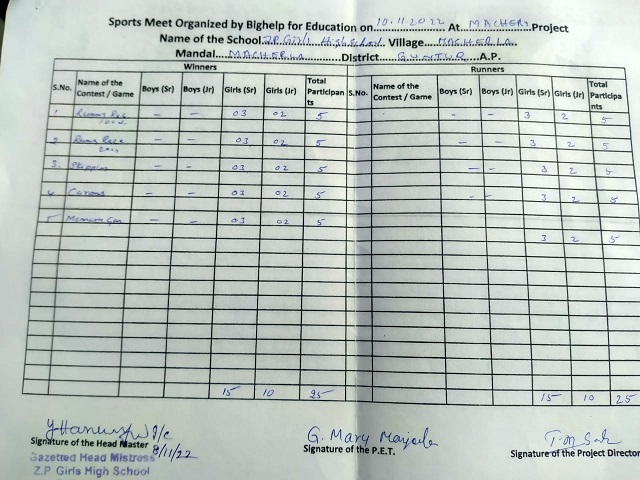 Sports Meet Organized by Bighelp for Education on 10.11.2022 At MACHERLA Project
Name of the School Z.P Girls High School Village MACHERLA
Mandal MACHERLA District GUNTUR A.P.
Winners Runners
S.No. Name of the Contest / Game Boys (Sr) Boys (Jr) Girls (Sr) Girls (Jr) Total Participants S.No. Name of the Contest / Game Boys (Sr) Boys (Jr) Girls (Sr) Girls (Jr) Total Participants
1 Running Race - - 03 02 5 - - 3 2 5
2 Runn Race - - 03 02 5 - - 3 2 5
3. Skipping - - 03 02 5 - - 3 2 5
4 Caroms - - 03 02 5 - - 3 2 5
5 Memory Game - - 03 02 5 3 2 5
15 10 25 15 10 25
I/c
8/11/22
G. Mary
Signature of the Head Master Signature of the P.E.T. Signature of the Project Director
Gazetted Head Mistress
Z.P Girls High School